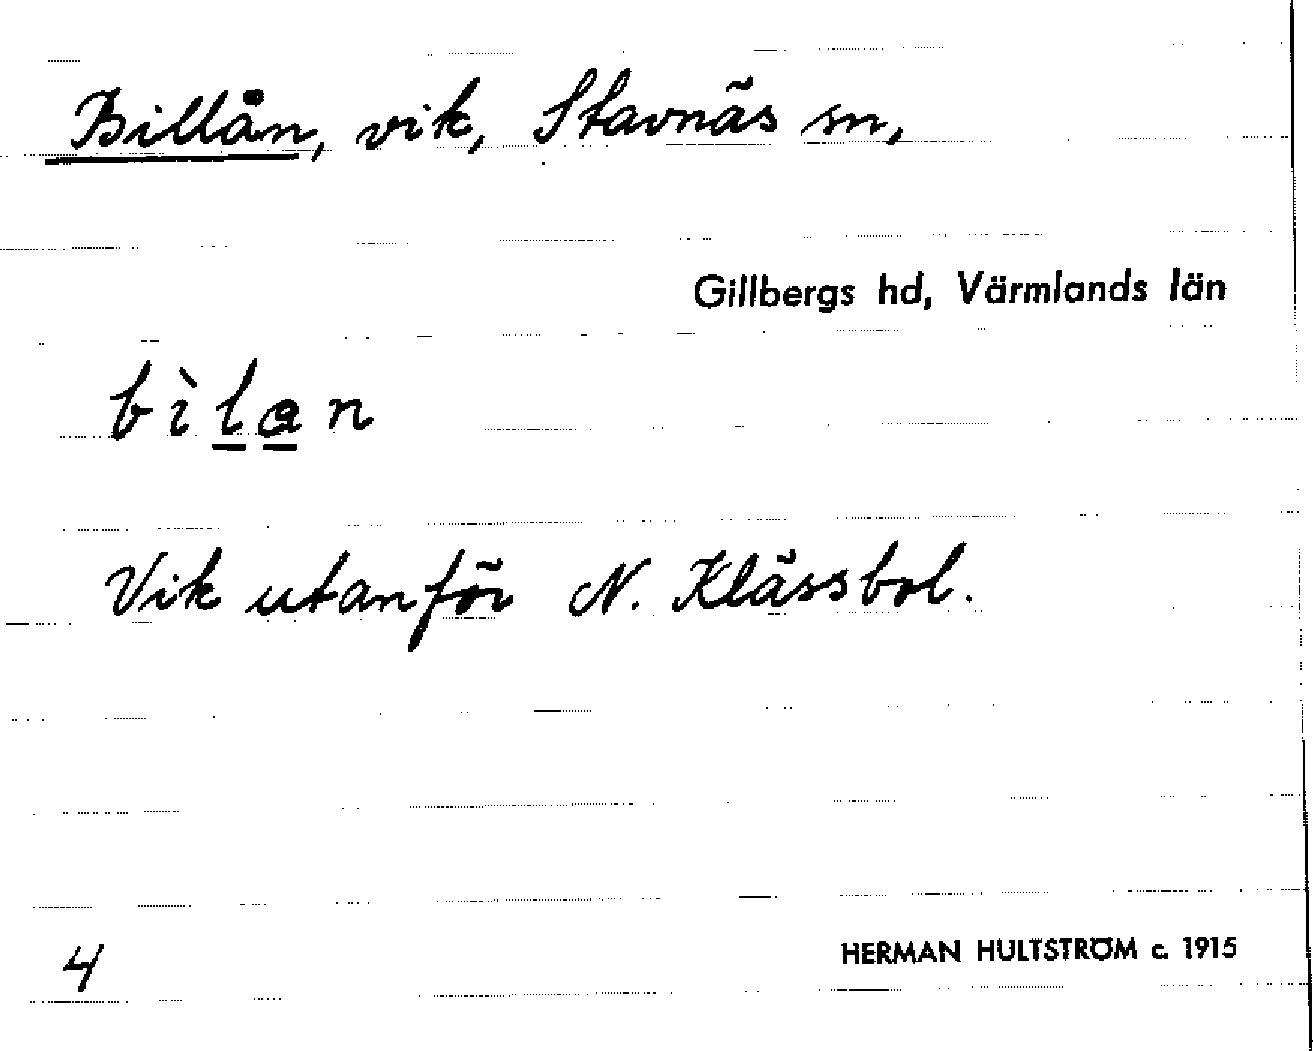 Billån, vik, Stavnäs sn,
Gillbergs hd, Värmlands län
bìlan
Vik utanför N. Klässbol.
4
HERMAN HULTSTRÖM c. 1915